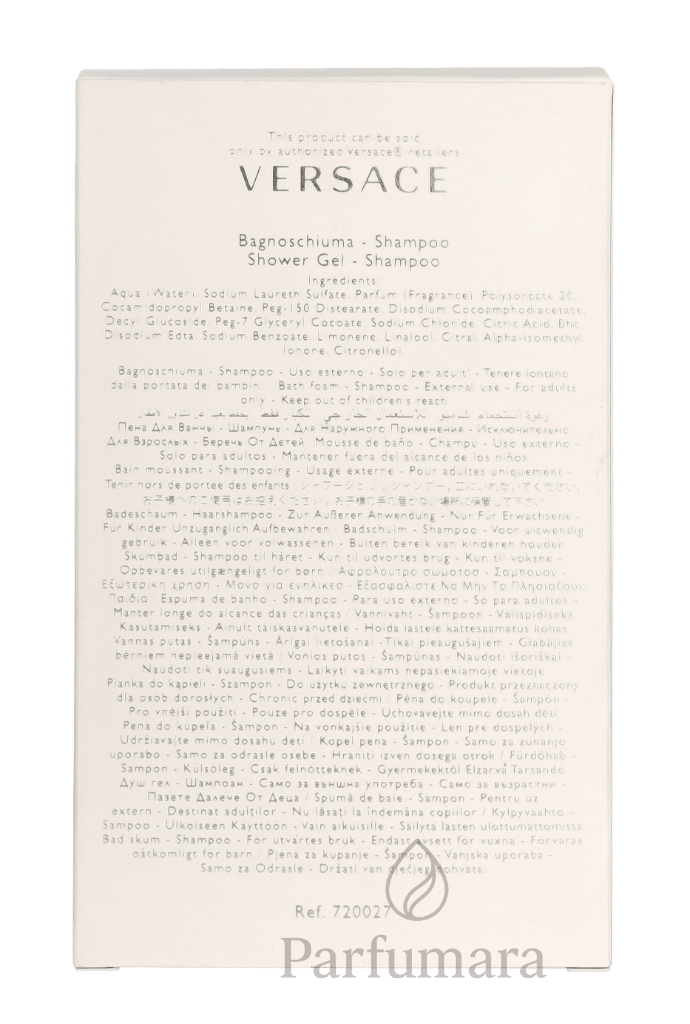 This product can be sold
only by authorized Versace® retailers
VERSACE
Bagnoschiuma - Shampoo
Shower Gel - Shampoo
Ingredients:
Aqua (Water), Sodium Laureth Sulfate, Parfum (Fragrance), Polysorbate 20,
Cocamidopropyl Betaine, Peg-150 Distearate, Disodium Cocoamphodiacetate,
Decyl Glucoside, Peg-7 Glyceryl Cocoate, Sodium Chloride, Citric Acid, Bht,
Disodium Edta, Sodium Benzoate, Limonene, Linalool, Citral, Alpha-isomethyl
Ionone, Citronellol.
Bagnoschiuma - Shampoo - Uso esterno - Solo per adulti - Tenere lontano
dalla portata dei bambini / Bath foam - Shampoo - External use - For adults
only - Keep out of children's reach
رغوة استحمام شامبو للاستعمال الخارجي للكبار فقط
Пена Для Ванны - Шампунь - Для Наружного Применения - Исключительно
Для Взрослых - Беречь От Детей. Mousse de baño - Champu - Uso externo -
Solo para adultos - Mantener fuera del alcance de los niños
Bain moussant - Shampooing - Usage externe - Pour adultes uniquement -
Tenir hors de portee des enfants / シャワージェル、シャンプー、口にいれないでください。
お子様へのご使用はお控えください。お子様の手の届かない場所に保管して下さい
Badeschaum - Haarshampoo - Zur Äußerer Anwendung - Nur Für Erwachsene -
Für Kinder Unzuganglich Aufbewahren / Badschuim - Shampoo - Voor uitwendig
gebruik - Alleen voor volwassenen - Buiten bereik van kinderen houden
Skumbad - Shampoo til håret - Kun til udvortes brug - Kun til voksne -
Opbevares utilgængeligt for børn / Αφρολουτρο σωματοσ - Σαμπουαν -
Εξωτερικη χρηση - Μονο για ενηλικεσ - Εξασφαλιστε Να Μην Το Πλησιαζουν
Παιδια / Espuma de banho - Shampoo - Para uso externo - Só para adultos -
Manter longe do alcance das crianças / Vannivaht - Šampoon - Valispidiseks
Kasutamiseks - Ainult täiskasvanutele - Hoida lastele kattesaamatus kohas
Vannas putas - Šampūns - Ārīgai lietošanai - Tikai pieaugušajiem - Glabājiet
bērniem nepieejamā vietā / Vonios putos - Šampūnas - Naudoti išoriškai -
Naudoti tik suaugusiems - Laikyti vaikams nepasiekiamoje vietoje
Pianka do kąpieli - Szampon - Do uzytku zewnętrznego - Produkt przeznaczony
dla osob dorosłych - Chronic przed dziecmi / Pěna do koupele - Šampón -
Pro vnější použití - Pouze pro dospěle - Uchovavejte mimo dosah dětí
Pena do kupeľa - Šampon - Na vonkajšie použitie - Len pre dospelych -
Udržiavajte mimo dosahu deti / Kopel pena - Šampon - Samo za zunanjo
uporabo - Samo za odrasle osebe - Hraniti izven dosega otrok / Fürdőhab -
Sampon - Külsőleg - Csak felnőtteknek - Gyermekektől Elzárva Tartandó
Душ гел - Шампоан - Само за външна употреба - Само за възрастни -
Пазете Далече От Деца / Spumă de baie - Sampon - Pentru uz
extern - Destinat adulţilor - Nu lăsaţi la îndemâna copiilor / Kylpyvaahto -
Sampoo - Ulkoiseen Kayttoon - Vain aikuisille - Sailyta lasten ulottumattomissa
Bad skum - Shampoo - For utvärtes bruk - Endast avsett för vuxna - Förvaras
oåtkomligt for barn / Pjena za kupanje - Šampon - Vanjska uporaba -
Samo za Odrasle - Držati van dječjeg dohvata.
Ref. 720027
Parfumara